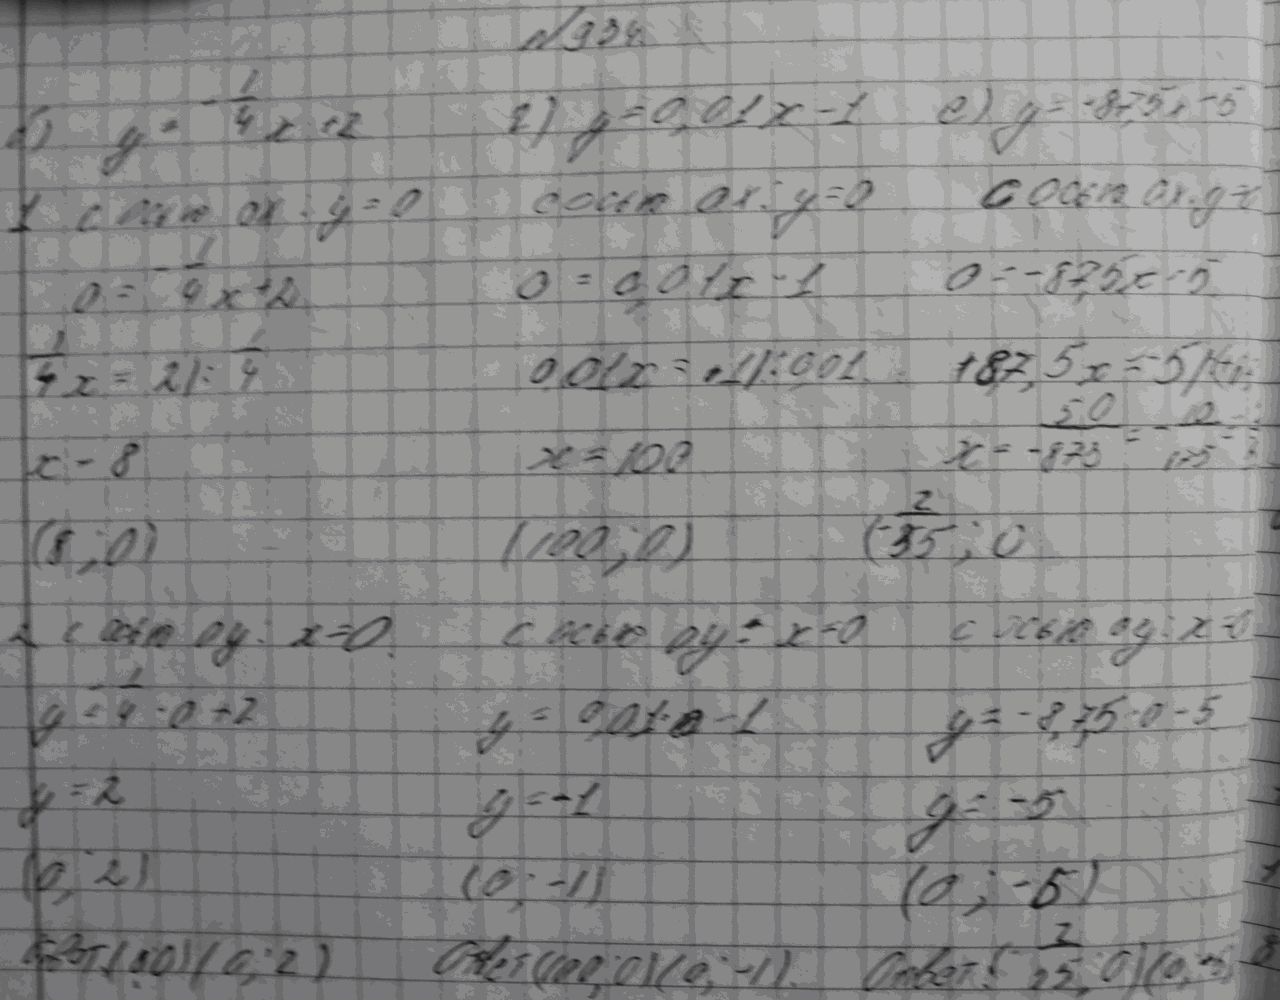 №934.
б) y = -1/4 x + 2
1 с осью ox: y = 0
0 = -1/4 x + 2
1/4 x = 2 |: 1/4
x - 8
(8; 0)
2 с осью oy: x = 0.
y = -1/4 · 0 + 2
y = 2
(0; 2)
Ответ (8;0) (0; 2)
г) y = 0,01x - 1
с осью ox: y = 0
0 = 0,01x - 1
0,01x = 1 |: 0,01
x = 100
(100; 0)
с осью oy: x = 0
y = 0,01·0 - 1
y = -1
(0; -1)
Ответ (100; 0) (0; -1)
е) y = -87,5x - 5
с осью ox: y =
0 = -87,5x - 5
+87,5x = -5
x = 50/-875 = -10/175 =
(-2/35; 0
с осью oy: x = 0
y = -8,75·0 - 5
y = -5
(0; -5)
Ответ